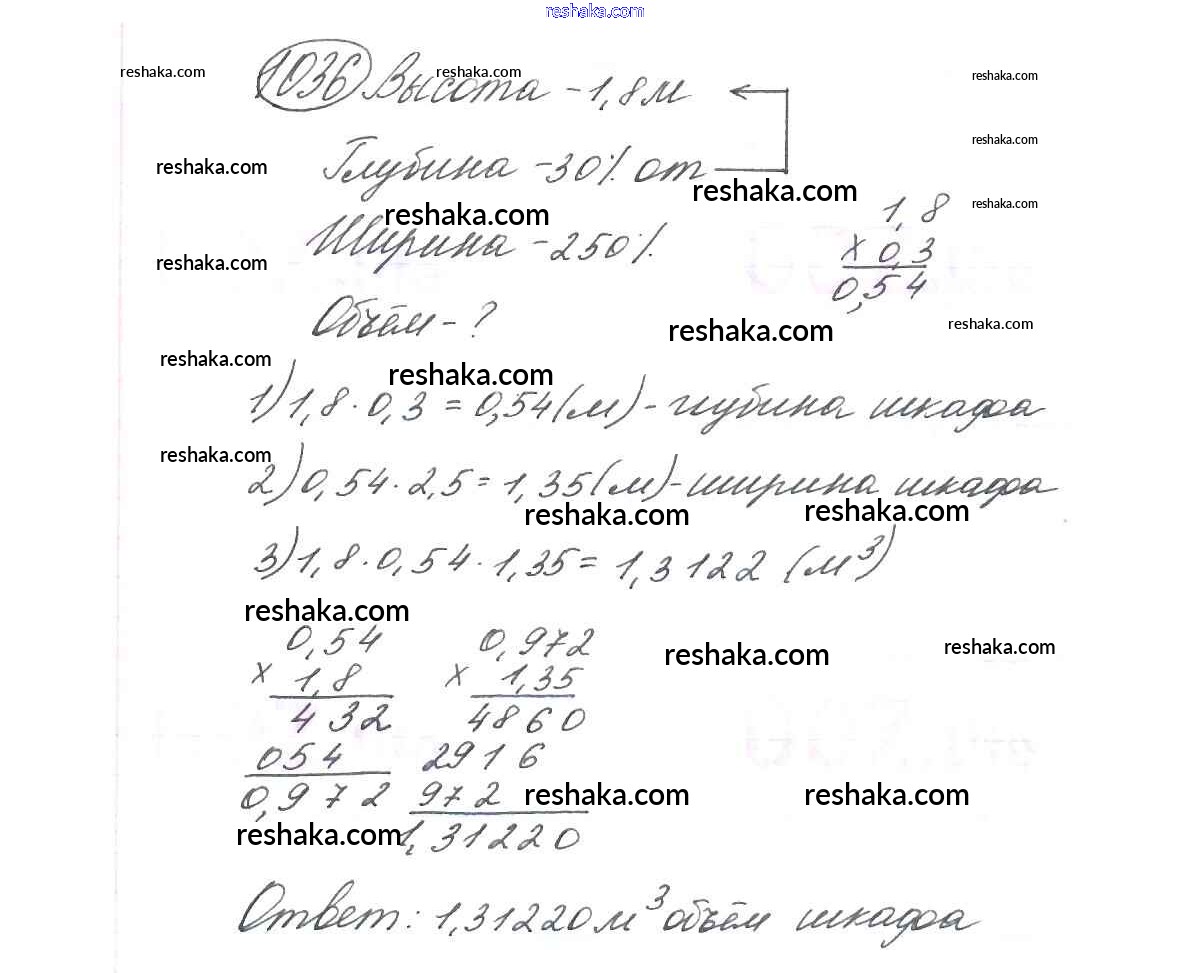 reshaka.com
reshaka.com reshaka.com reshaka.com
1036 Высота - 1,8 м
reshaka.com
reshaka.com
Глубина - 30% от
reshaka.com
reshaka.com
reshaka.com
Ширина - 250%.
reshaka.com
1,8
× 0,3
0,54
Объём - ?
reshaka.com
reshaka.com
reshaka.com
reshaka.com
1) 1,8 · 0,3 = 0,54 (м) - глубина шкафа
reshaka.com
2) 0,54 · 2,5 = 1,35 (м) - ширина шкафа
reshaka.com reshaka.com
3) 1,8 · 0,54 · 1,35 = 1,3122 (м³)
reshaka.com
0,54
× 1,8
432
054
0,972
0,972
× 1,35
4860
2916
972
1,31220
reshaka.com reshaka.com
reshaka.com reshaka.com
reshaka.com
Ответ: 1,31220 м³ объём шкафа